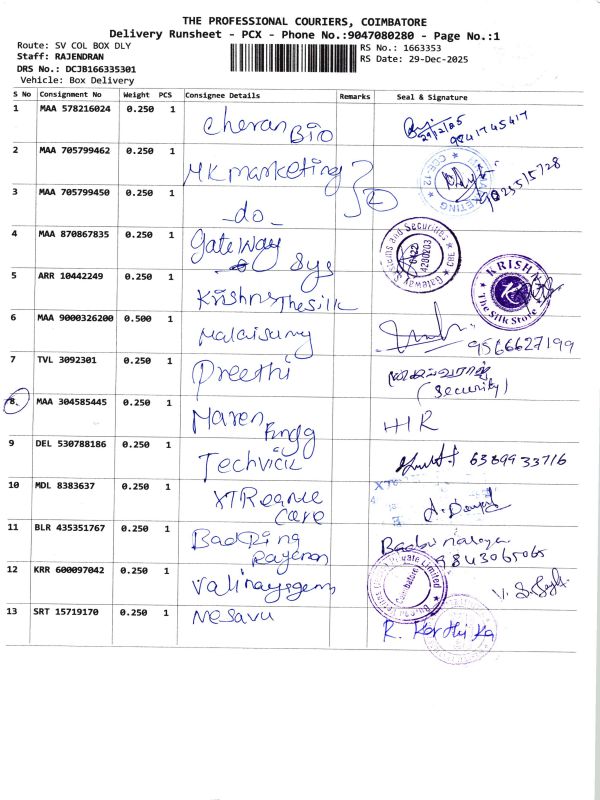 THE PROFESSIONAL COURIERS, COIMBATORE
Delivery Runsheet - PCX - Phone No.:9047080280 - Page No.:1
Route: SV COL BOX DLY
RS No.: 1663353
Staff: RAJENDRAN
RS Date: 29-Dec-2025
DRS No.: DCJB166335301
Vehicle: Box Delivery
S No Consignment No Weight PCS Consignee Details Remarks Seal & Signature
1 MAA 578216024 0.250 1 Cheran Bio 29/12/25 9841745417
2 MAA 705799462 0.250 1 MK marketing 2
3 MAA 705799450 0.250 1 -do-
4 MAA 870867835 0.250 1 Gateway Sys
5 ARR 10442249 0.250 1 Krishna The silk KRISHNA The Silk Store
6 MAA 9000326200 0.500 1 Malaisamy 9566627199
7 TVL 3092301 0.250 1 Preethi (Security)
8 MAA 304585445 0.250 1 Maren HR
9 DEL 530788186 0.250 1 Technick 6389933716
10 MDL 8383637 0.250 1 care
11 BLR 435351767 0.250 1 9843065065
12 KRR 600097042 0.250 1 Valinayagam
13 SRT 15719170 0.250 1 Nesavu R. Karthika